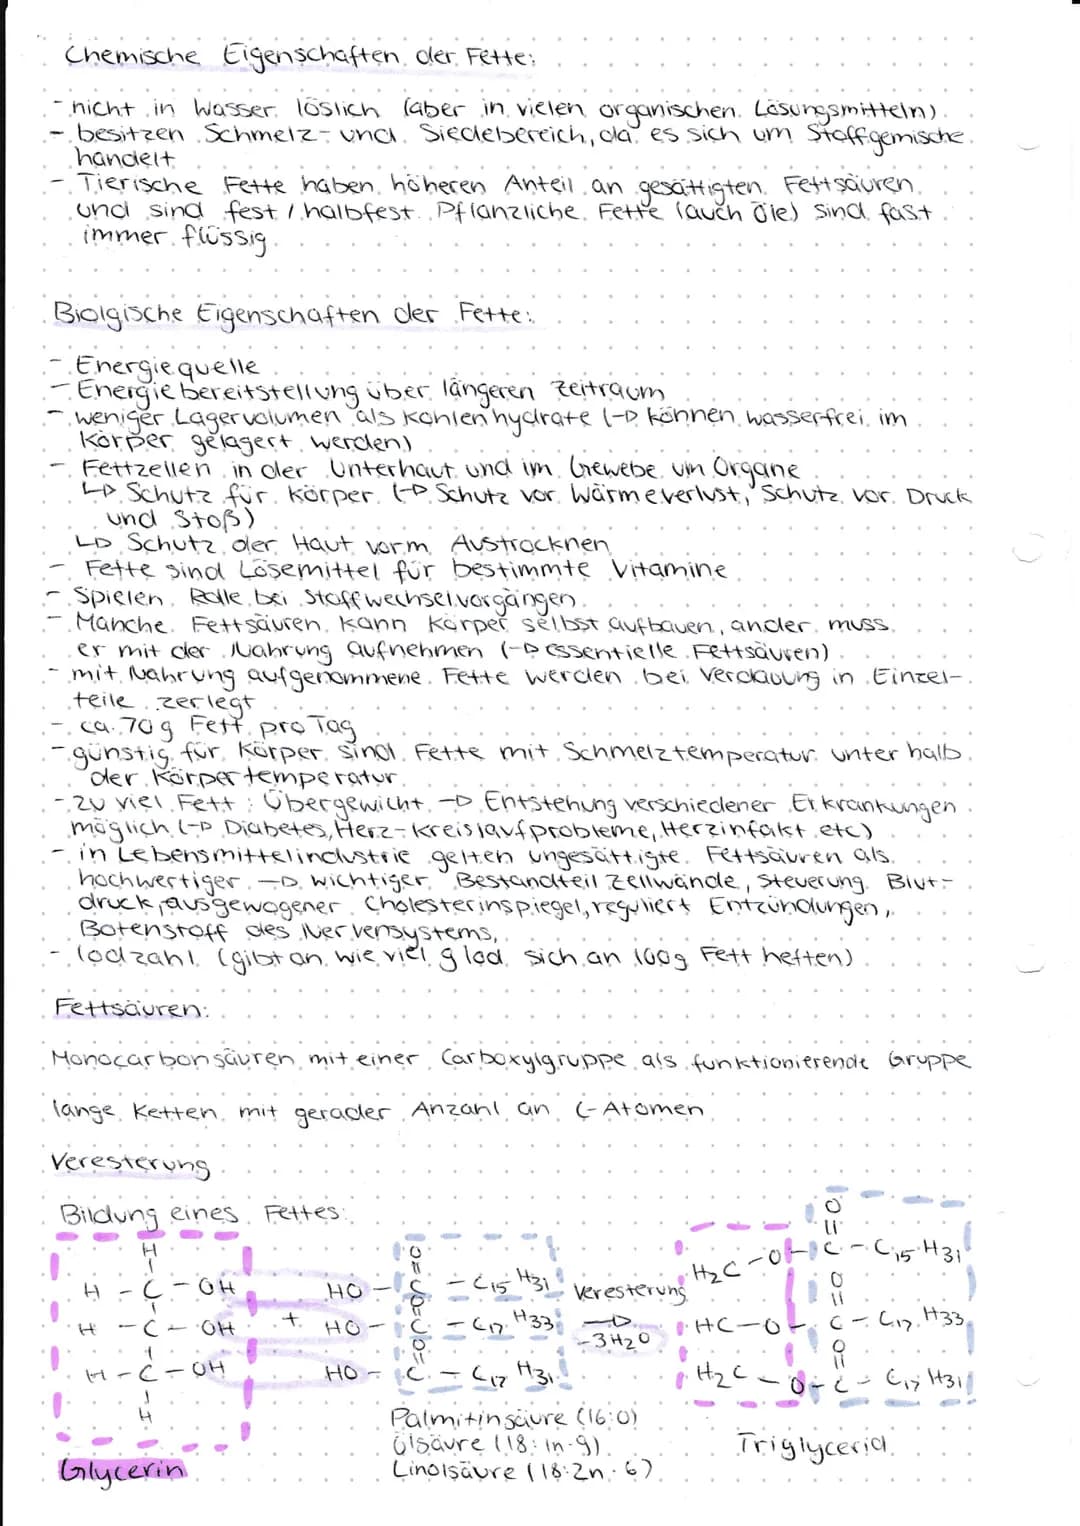 Chemische Eigenschaften der Fette:
- nicht in Wasser löslich (aber in vielen organischen Lösungsmitteln)
- besitzen Schmelz- und Siedebereich, da es sich um Stoffgemische
handelt
- Tierische Fette haben höheren Anteil an gesättigten Fettsäuren
und sind fest / halbfest. Pflanzliche Fette (auch Öle) sind fast
immer flüssig
Biolgische Eigenschaften der Fette:
- Energiequelle
- Energiebereitstellung über längeren Zeitraum
- weniger Lagervolumen als Kohlenhydrate (→ können wasserfrei im
Körper gelagert werden)
- Fettzellen in der Unterhaut und im Gewebe um Organe
↳ Schutz für Körper (→ Schutz vor Wärmeverlust, Schutz vor Druck
und Stoß)
↳ Schutz der Haut vorm Austrocknen
- Fette sind Lösemittel für bestimmte Vitamine
- Spielen Rolle bei Stoffwechselvorgängen
- Manche Fettsäuren kann Körper selbst aufbauen, ander muss
er mit der Nahrung aufnehmen (→ essentielle Fettsäuren)
- mit Nahrung aufgenommene Fette werden bei Verdauung in Einzel-
teile zerlegt
- ca. 70g Fett pro Tag
- günstig für Körper sind Fette mit Schmelztemperatur unterhalb
der Körpertemperatur
- zu viel Fett: Übergewicht → Entstehung verschiedener Erkrankungen
möglich (→ Diabetes, Herz-kreislaufprobleme, Herzinfakt etc)
- in Lebensmittelindustrie gelten ungesättigte Fettsäuren als
hochwertiger → wichtiger Bestandteil Zellwände, Steuerung Blut-
druck, ausgewogener Cholesterinspiegel, reguliert Entzündungen,
Botenstoff des Nervensystems,
- Iodzahl (gibt an wie viel g Iod sich an 100g Fett heften)
Fettsäuren:
Monocarbonsäuren mit einer Carboxylgruppe als funktionierende Gruppe
lange Ketten mit gerader Anzahl an C-Atomen
Veresterung
Bildung eines Fettes:
H O O
H - C - OH HO - C - C15 H31 H2C - O - C - C15 H31
H - C - OH + HO - C - C17 H33 Veresterung → -3H2O HC - O - C - C17 H33
H - C - OH HO - C - C17 H31 H2C - O - C - C17 H31
H
Palmitinsäure (16:0)
Ölsäure (18:1n-9)
Linolsäure (18:2n-6)
Triglycerid
Glycerin